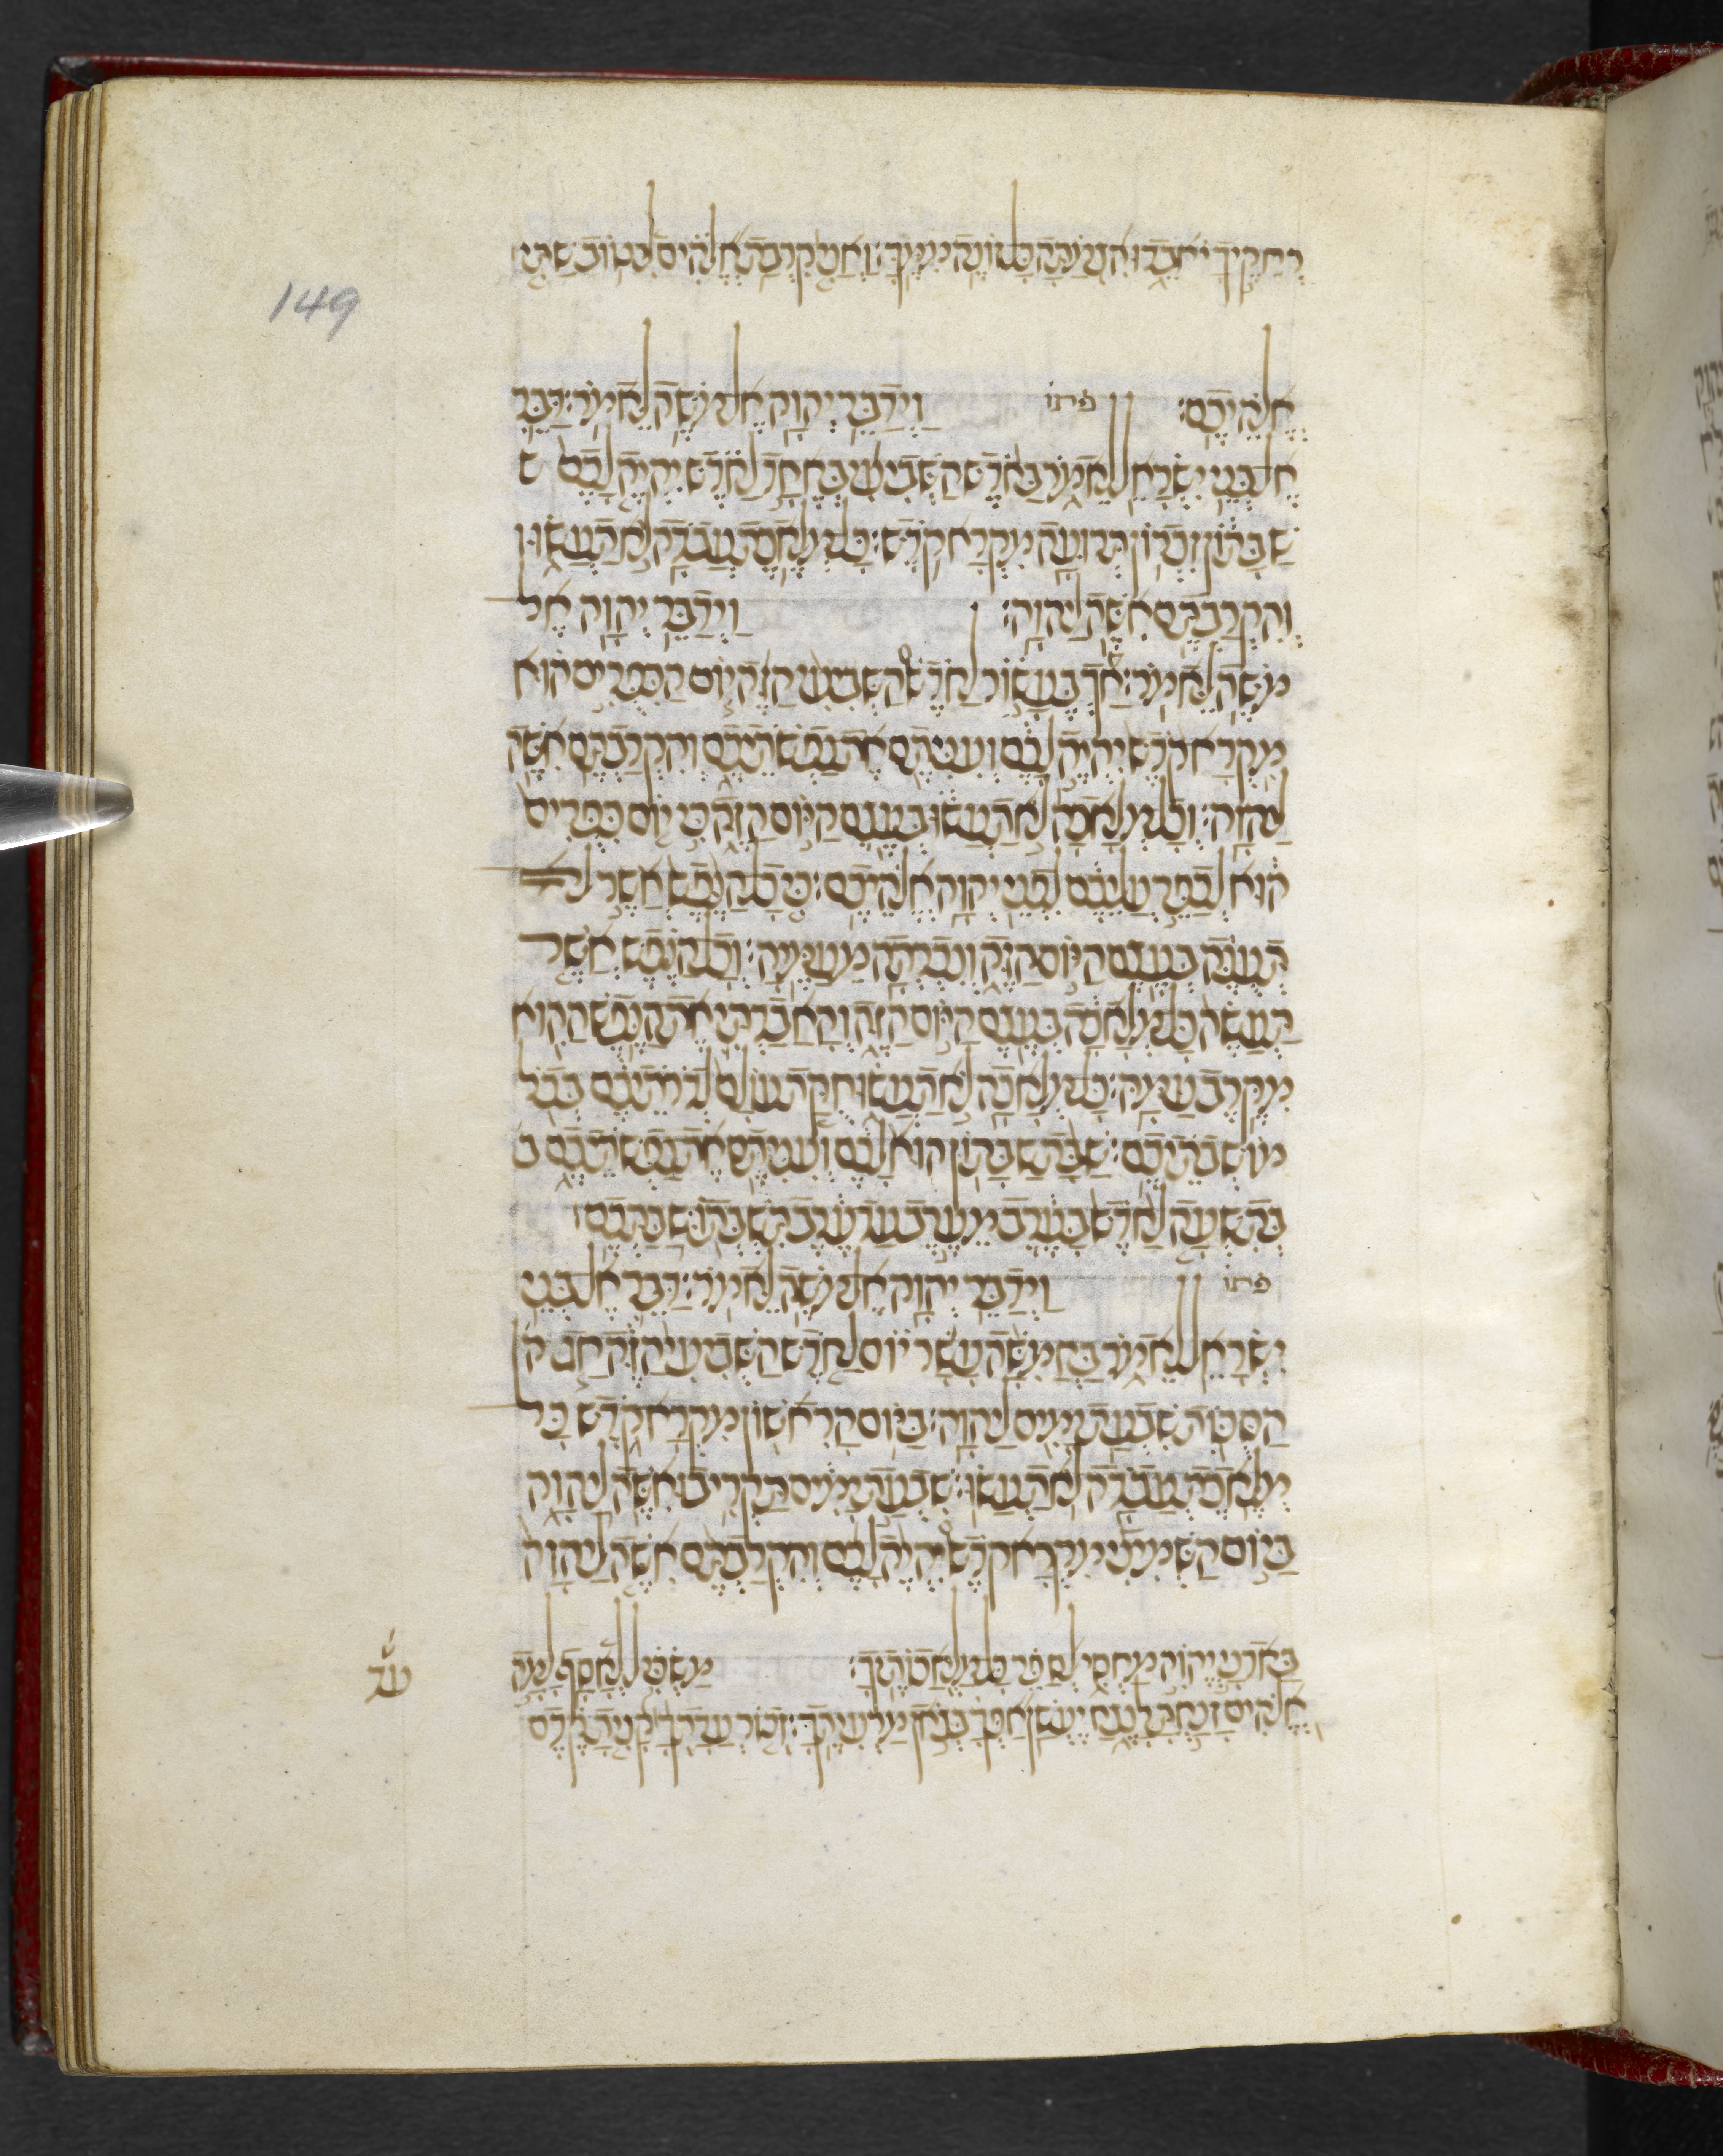 רְחֵקֶיךָ יֹאבֵדוּ הִצְמַתָּה כָּל זוֹנֶה מִמֶּךָּ׃ וַאֲנִי קִרֲבַת אֱלֹהִים לִי טוֹב שַׁתִּי
149
אֱלֹהֵיכֶם׃ פתו וַיְדַבֵּר יְהוָה אֶל מֹשֶׁה לֵּאמֹר׃ דַּבֵּר
אֶל בְּנֵי יִשְׂרָאֵל לֵאמֹר בַּחֹדֶשׁ הַשְּׁבִיעִי בְּאֶחָד לַחֹדֶשׁ יִהְיֶה לָכֶם ש
שַׁבָּתוֹן זִכְרוֹן תְּרוּעָה מִקְרָא קֹדֶשׁ׃ כָּל מְלֶאכֶת עֲבֹדָה לֹא תַעֲשׂוּ
וְהִקְרַבְתֶּם אִשֶּׁה לַיהוָה׃ וַיְדַבֵּר יְהוָה אֶל
מֹשֶׁה לֵּאמֹר׃ אַךְ בֶּעָשׂוֹר לַחֹדֶשׁ הַשְּׁבִיעִי הַזֶּה יוֹם הַכִּפֻּרִים הוּא
מִקְרָא קֹדֶשׁ יִהְיֶה לָכֶם וְעִנִּיתֶם אֶת נַפְשֹׁתֵיכֶם וְהִקְרַבְתֶּם אִשֶּׁה
לַיהוָה׃ וְכָל מְלָאכָה לֹא תַעֲשׂוּ בְּעֶצֶם הַיּוֹם הַזֶּה כִּי יוֹם כִּפֻּרִים
הוּא לְכַפֵּר עֲלֵיכֶם לִפְנֵי יְהוָה אֱלֹהֵיכֶם׃ כִּי כָל הַנֶּפֶשׁ אֲשֶׁר לֹא
תְעֻנֶּה בְּעֶצֶם הַיּוֹם הַזֶּה וְנִכְרְתָה מֵעַמֶּיהָ׃ וְכָל הַנֶּפֶשׁ אֲשֶׁר
תַּעֲשֶׂה כָּל מְלָאכָה בְּעֶצֶם הַיּוֹם הַזֶּה וְהַאֲבַדְתִּי אֶת הַנֶּפֶשׁ הַהִוא
מִקֶּרֶב עַמָּהּ׃ כָּל מְלָאכָה לֹא תַעֲשׂוּ חֻקַּת עוֹלָם לְדֹרֹתֵיכֶם בְּכֹל
מֹשְׁבֹתֵיכֶם׃ שַׁבַּת שַׁבָּתוֹן הוּא לָכֶם וְעִנִּיתֶם אֶת נַפְשֹׁתֵיכֶם ב
בְּתִשְׁעָה לַחֹדֶשׁ בָּעֶרֶב מֵעֶרֶב עַד עֶרֶב תִּשְׁבְּתוּ שַׁבַּתְּכֶם׃
פתו וַיְדַבֵּר יְהוָה אֶל מֹשֶׁה לֵּאמֹר׃ דַּבֵּר אֶל בְּנֵי
יִשְׂרָאֵל לֵאמֹר בַּחֲמִשָּׁה עָשָׂר יוֹם לַחֹדֶשׁ הַשְּׁבִיעִי הַזֶּה חַג ה
הַסֻּכּוֹת שִׁבְעַת יָמִים לַיהוָה׃ בַּיּוֹם הָרִאשׁוֹן מִקְרָא קֹדֶשׁ כָּל
מְלֶאכֶת עֲבֹדָה לֹא תַעֲשׂוּ׃ שִׁבְעַת יָמִים תַּקְרִיבוּ אִשֶּׁה לַיהוָה
בַּיּוֹם הַשְּׁמִינִי מִקְרָא קֹדֶשׁ יִהְיֶה לָכֶם וְהִקְרַבְתֶּם אִשֶּׁה לַיהוָה
בַּאדֹנָי יְהוִה מַחְסִי לְסַפֵּר כָּל מַלְאֲכוֹתֶיךָ׃ מַשְׂכִּיל לְאָסָף לָמָה
עד
אֱלֹהִים זָנַחְתָּ לָנֶצַח יֶעְשַׁן אַפְּךָ בְּצֹאן מַרְעִיתֶךָ׃ זְכֹר עֲדָתְךָ קָנִיתָ קֶּדֶם